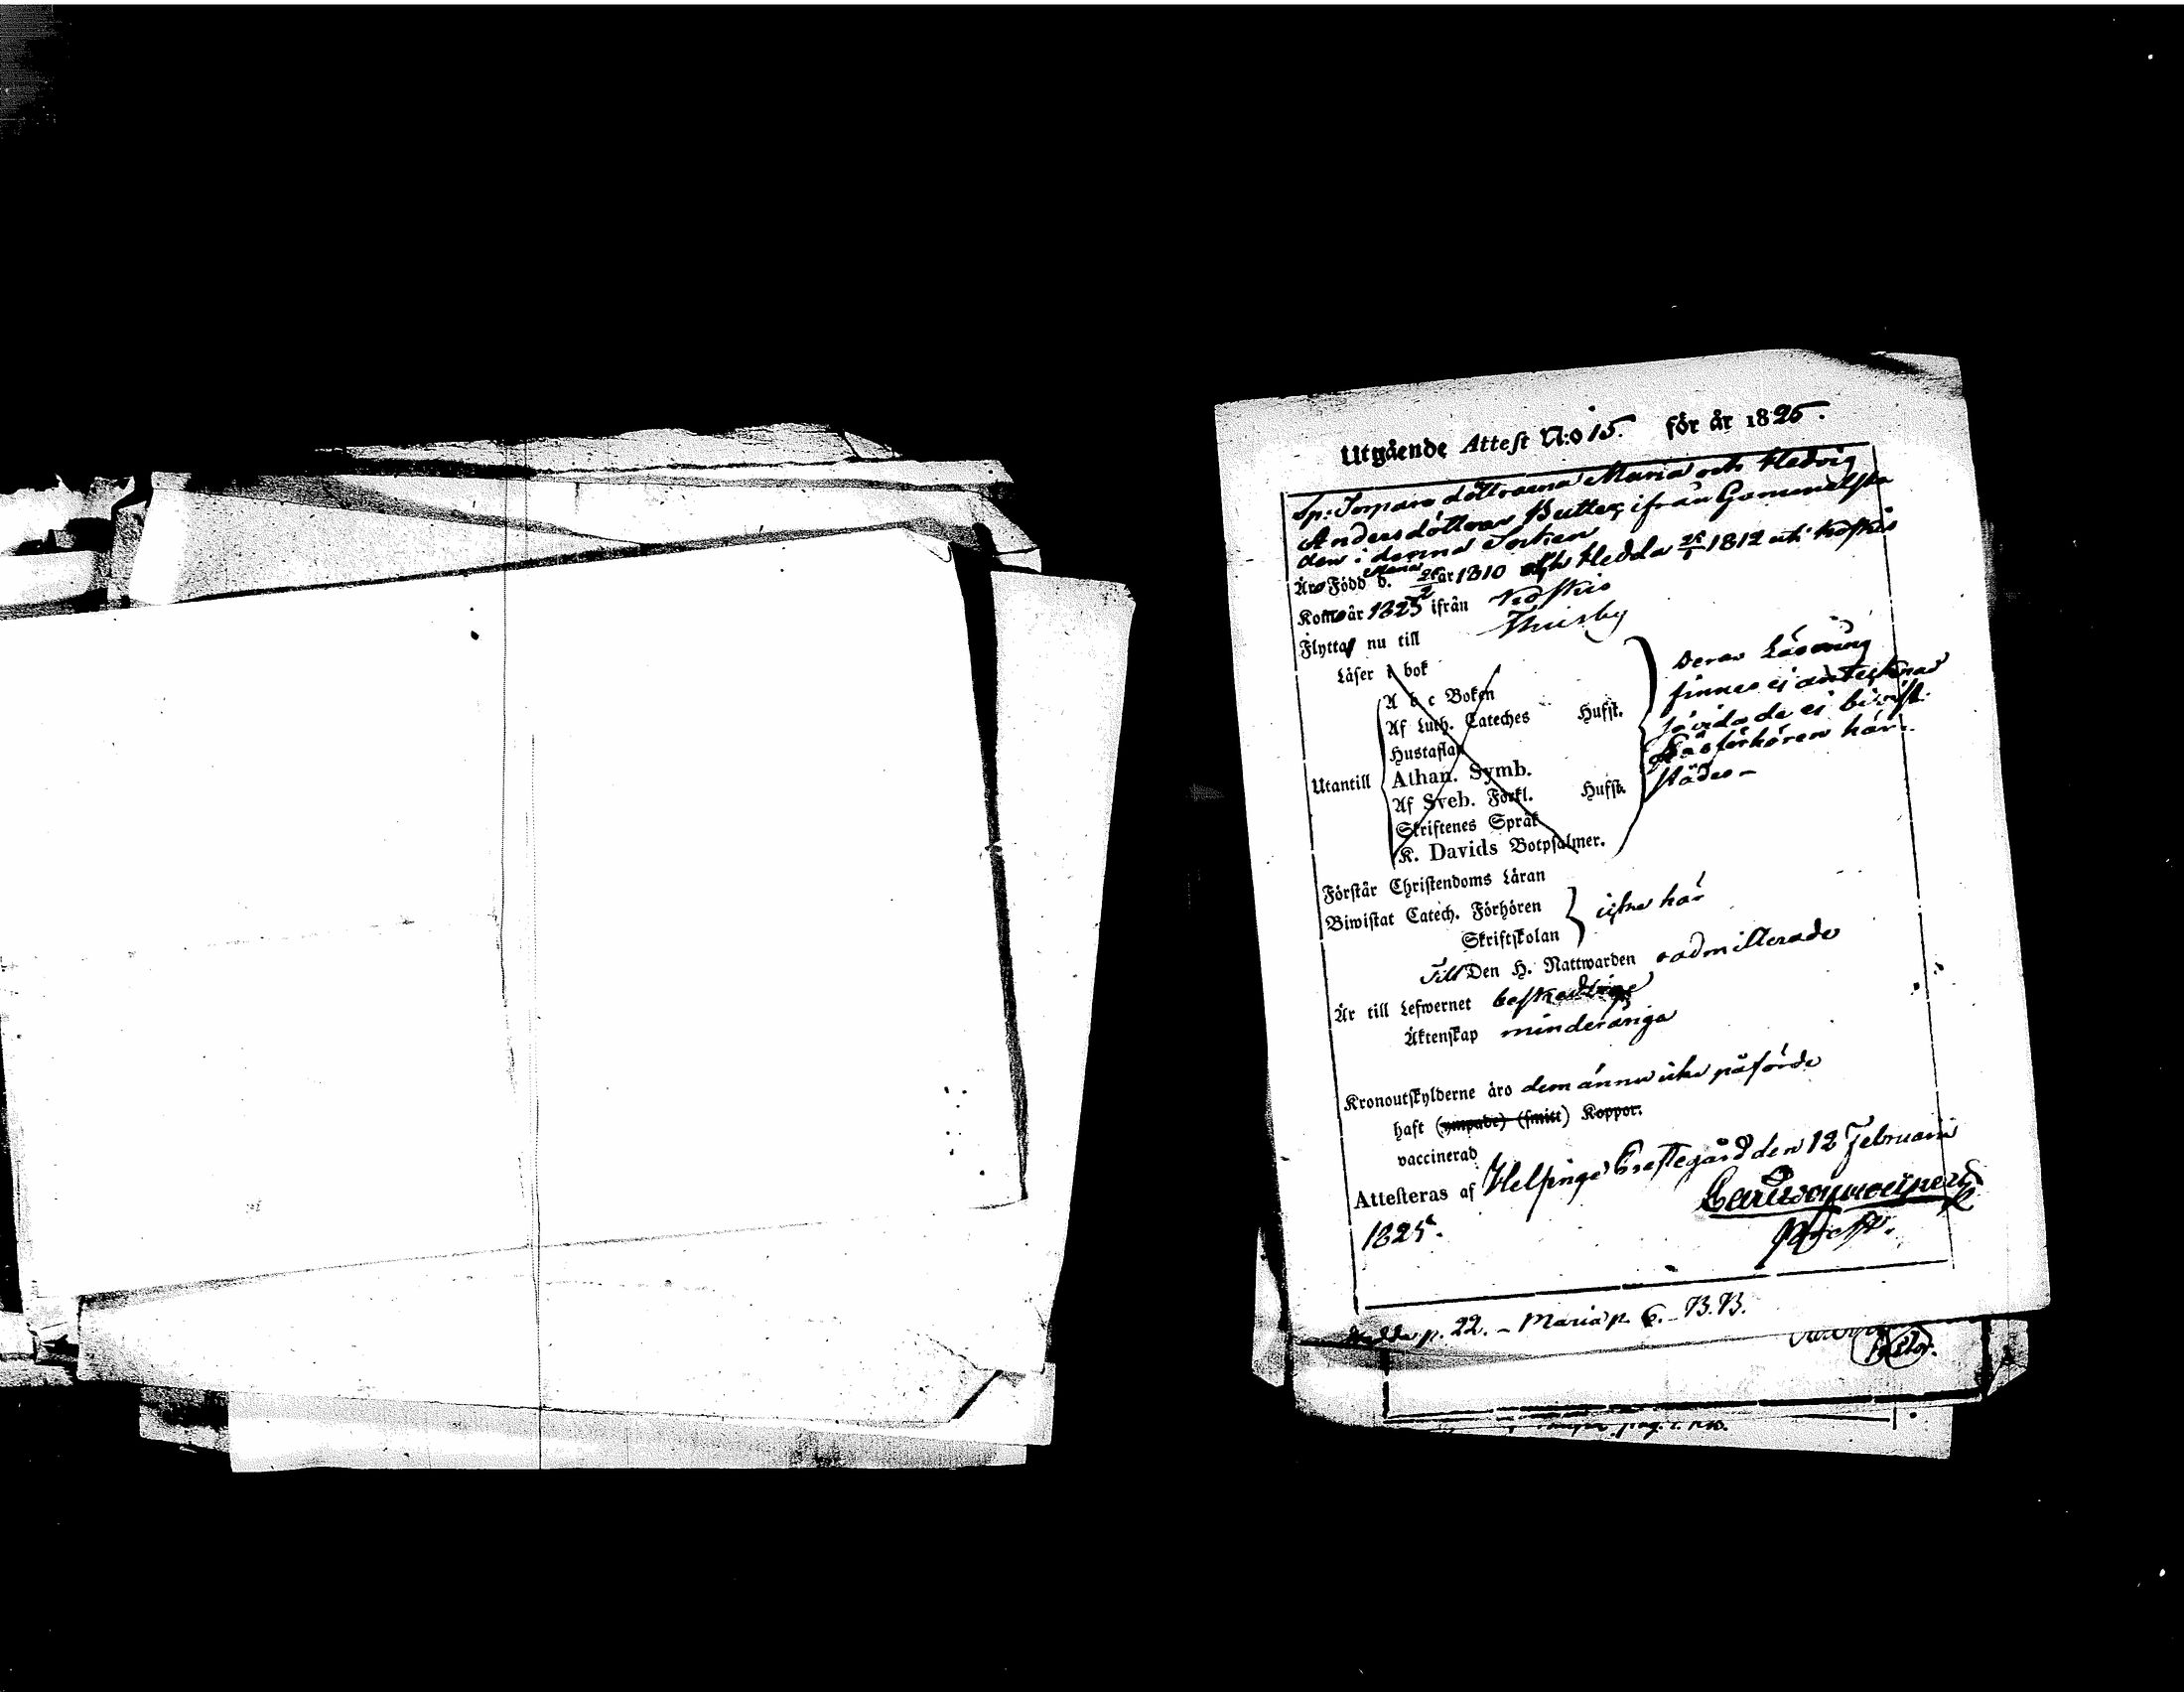 Utgående Attest N:o 15. för år 1825.
Sp: Torpare döttrarna Maria och Hedvig
Andersdöttrar Butter, ifrån Gammelsta
den i denna Socken
Äro Född d. Maria 26/2 år 1810 och Hedda 25/1 1812 uti Koskis
Komo år 1823 ifrån Koskis
Flytta nu till Thusby
Läser i bok
A b c Boken
Af Luth. Cateches Hufst.
Hustaflan
Utantill Athan. Symb.
Af Sveb. Förkl. Hufst.
Skriftenes Språk
K. Davids Botpsalmer.
deras Läsning
finnes ej antecknad
så vida de ej bivist.
Läsförhören här-
städes -
Förstår Christendoms Läran
Biwistat Catech. Förhören
Skriftskolan
icke här
Till Den H. Nattwarden oadmitterade
Är till Lefwernet beskedlige
Äktenskap minderåriga
Kronoutskylderne äro dem ännu icke påförde
haft (ympade) (smitt) Koppor.
vaccinerad
Attesteras af Helsinge Prestegård den 12 Februarii
1825.
Hedda p. 22. - Maria p. 6. - B.B.